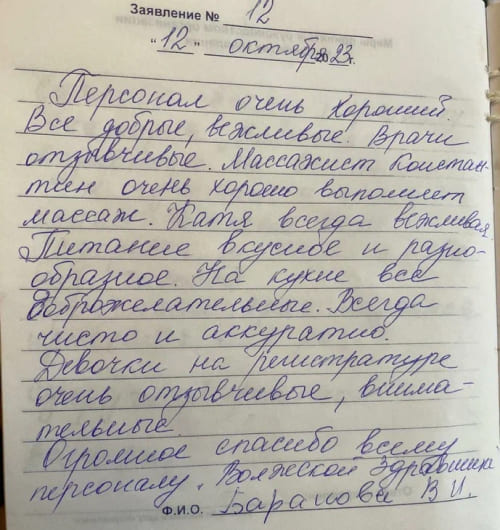 Заявление № 12
"12" октября 2023г.
Персонал очень хороший.
Все добрые, вежливые. Врачи
отзывчивые. Массажист Констан-
тин очень хорошо выполняет
массаж. Катя всегда вежливая
Питание вкусное и разно-
образное. На кухне все
доброжелательные. Всегда
чисто и аккуратно.
Девочки на регистратуре
очень отзывчивые, внима-
тельные
Огромное спасибо всему
персоналу. Волжской Здравница
Ф.И.О. Баранова В И.